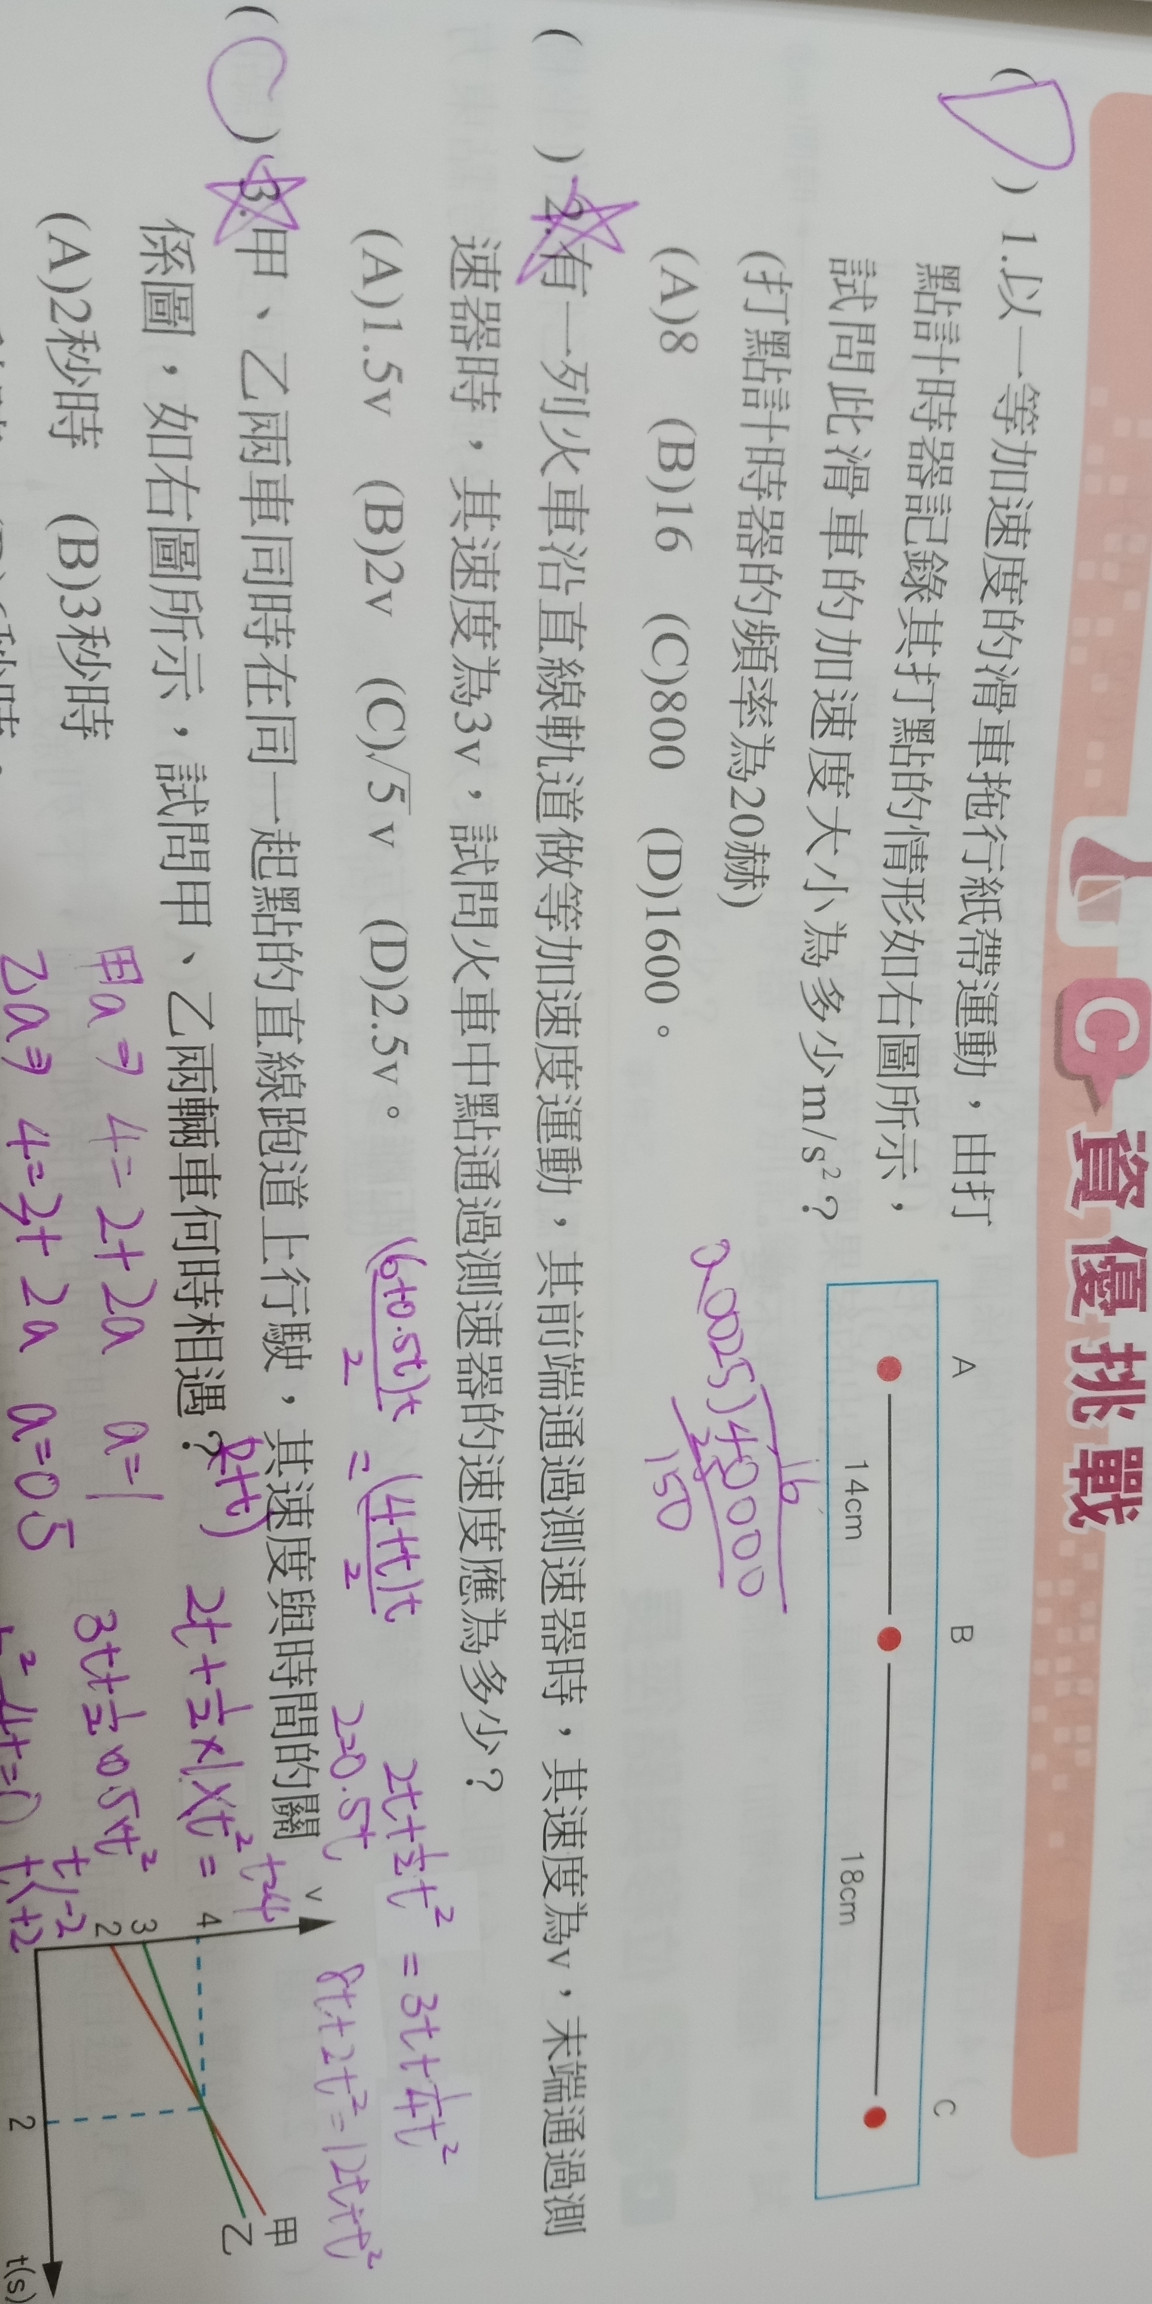 C 資優挑戰
(D) 1.以一等加速度的滑車拖行紙帶運動，由打
點計時器記錄其打點的情形如右圖所示，
試問此滑車的加速度大小為多少m/s²？
(打點計時器的頻率為20赫)
(A)8 (B)16 (C)800 (D)1600。
A B C
14cm 18cm
16
0.0025)40000
25
150
( ) 2.有一列火車沿直線軌道做等加速度運動，其前端通過測速器時，其速度為v，末端通過測
速器時，其速度為3v，試問火車中點通過測速器的速度應為多少？
(A)1.5v (B)2v (C)√5v (D)2.5v。
(6+0.5t)t/2 = (4+t)t/2
2t+½t² = 3t+¼t²
2=0.5t
8t+2t²=12t+t²
(C) 3.甲、乙兩車同時在同一起點的直線跑道上行駛，其速度與時間的關
係圖，如右圖所示，試問甲、乙兩輛車何時相遇？
(A)2秒時 (B)3秒時
甲a⇒ 4=2+2a a=1
乙a⇒ 4=3+2a a=0.5
2t+½×1×t²=
3t+½×0.5×t²
t=4
v
4
3
2
2
t(s)
甲
乙